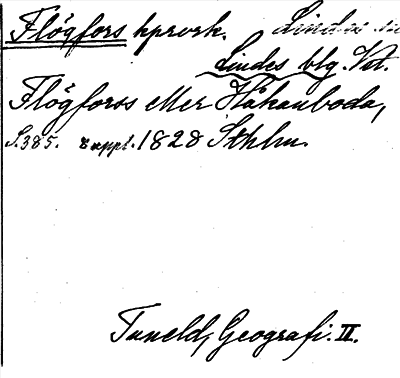 Flögfors hprvrk. Lindes
Lindes blg. Vst.
Flögforss eller Håkanboda,
S. 385. uppl. 1828 Sthlm.
Tuneld, Geografi. II.